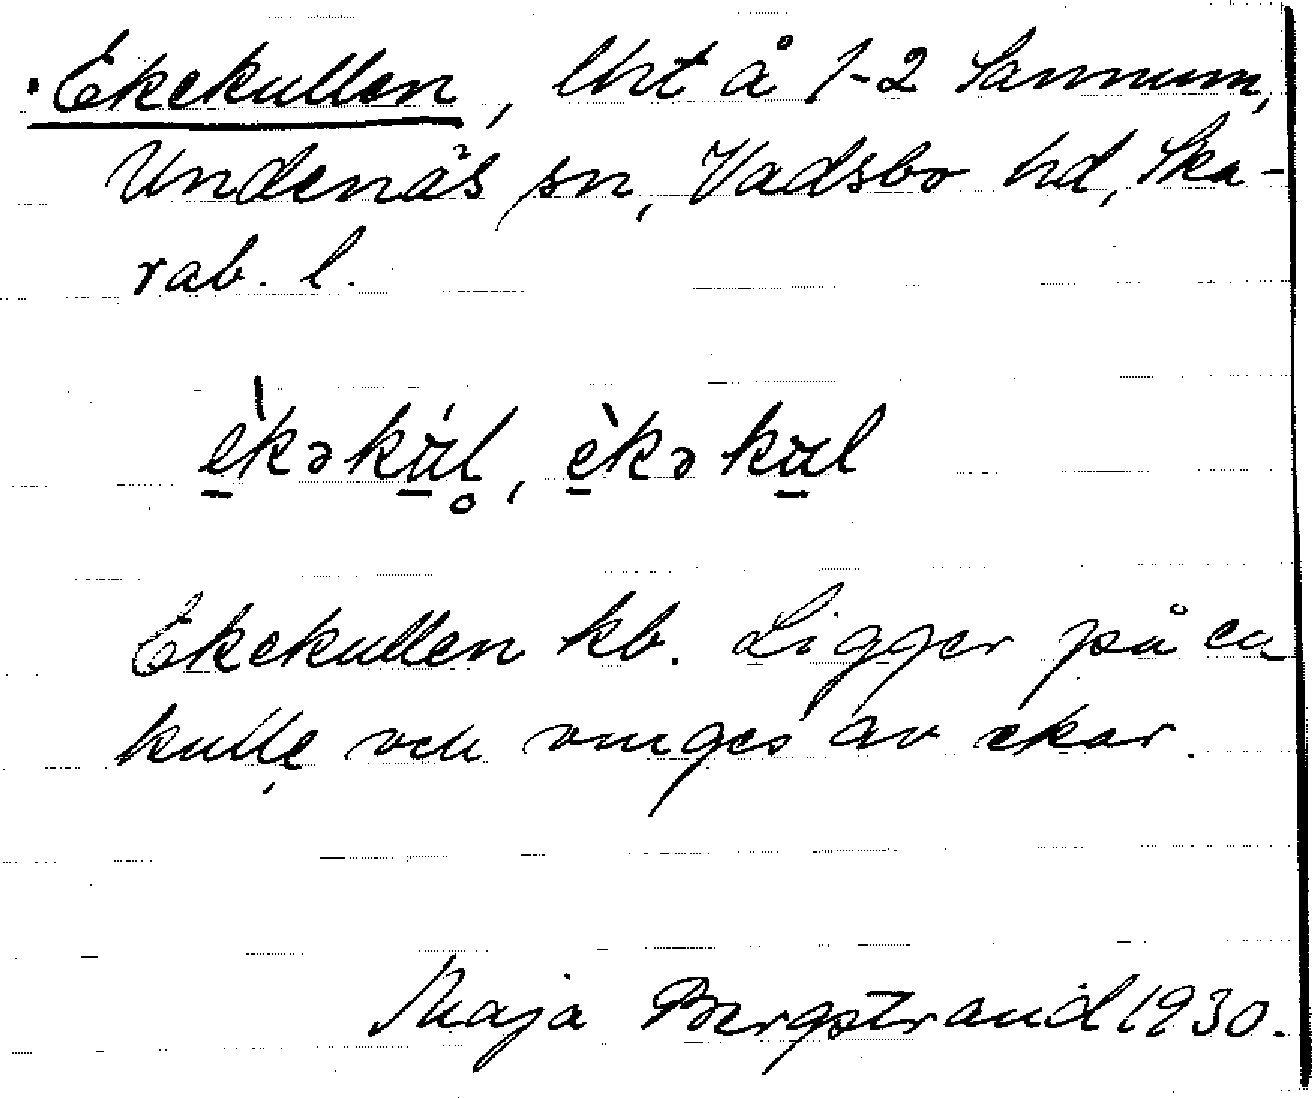 Ekekullen, lht å 1-2 Sannum,
Undenäs sn, Vadsbo hd, Ska-
rab. l.
è̱kəkü̱l̥, è̱kəkü̱l
Ekekullen kb. Ligger på en
kulle och omges av ekar.
Maja Bergstrand 1930.